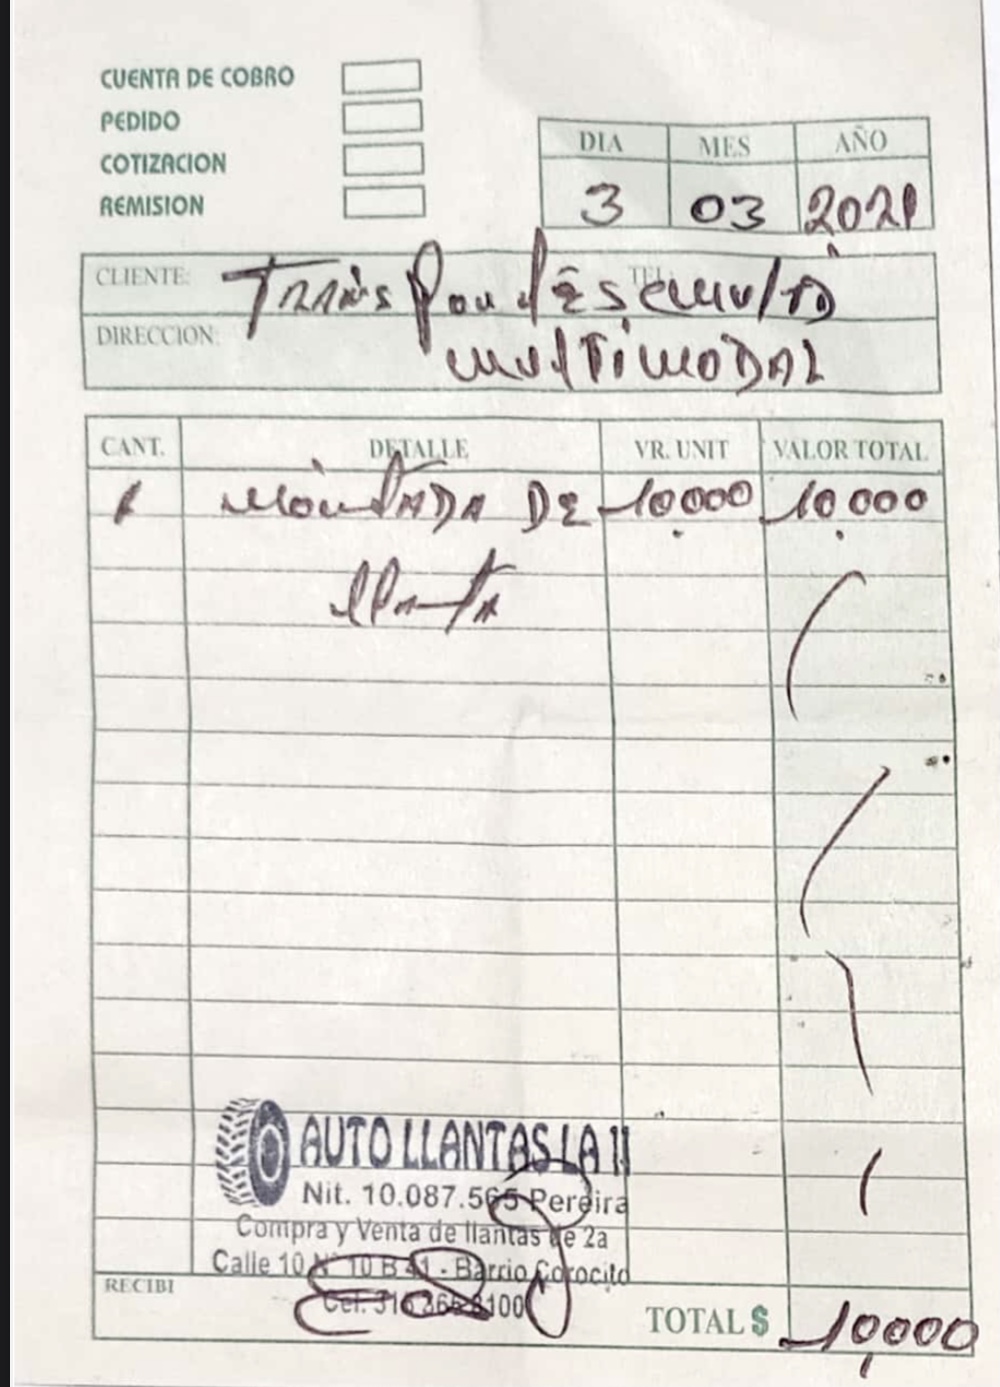 CUENTA DE COBRO
PEDIDO
COTIZACION
REMISION
DIA MES AÑO
3 03 2021
CLIENTE: Transportes TEL:
DIRECCION: multimodal
CANT. DETALLE VR. UNIT VALOR TOTAL
1 montada DE 10.000 10.000
llanta
AUTO LLANTAS LA 11
Nit. 10.087.565 Pereira
Compra y Venta de llantas de 2a
Calle 10 N° 10 B 41 - Barrio Corocito
RECIBI Cel. 100
TOTAL $ 10,000